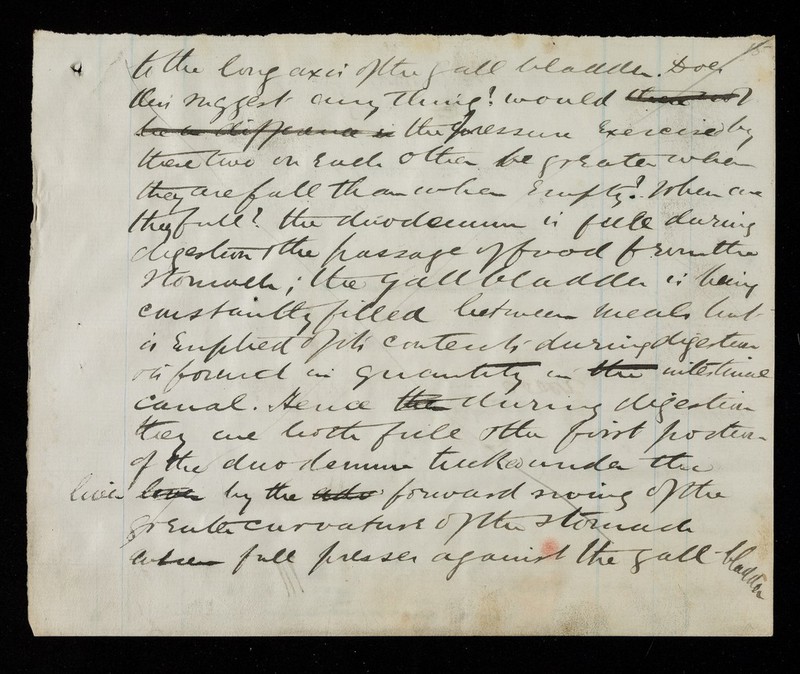 15
to the long axis of the gall bladder. Does
this suggest any thing? would there not
be a difference in the pressure exercised by
these two on each other be greater when
they are full than when Empty? When are
they full? the duodenum is full during
digestion & the passage of food from the
stomach; the gall bladder is being
constantly filled between meals but
is Emptied of its contents during digestion
& is found in quantity in the intestinal
canal. Hence then during digestion
they are both full & the first portion
of the duodenum tucked under the
liver by the forward swing of the
greater curvature of the stomach
when full presses against the gall-bladder